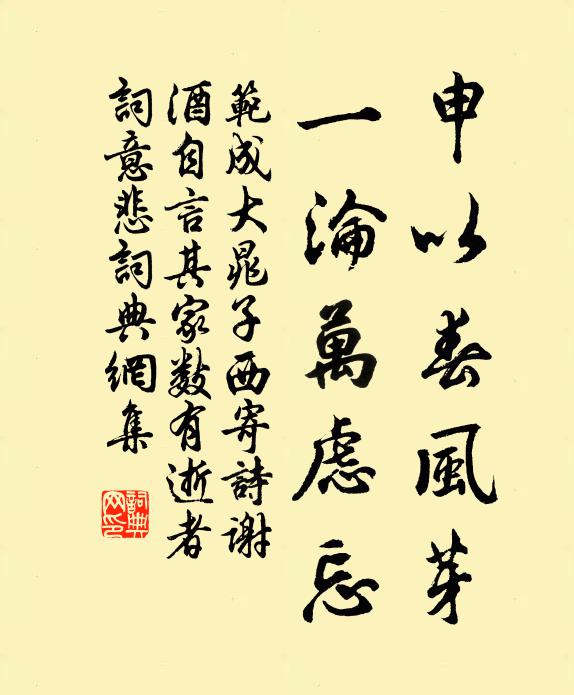 申以春風芽
一淪萬慮忘
範成大晁子西寄詩謝
酒自言其家數有逝者
詞意悲詞典網集
詞典网印